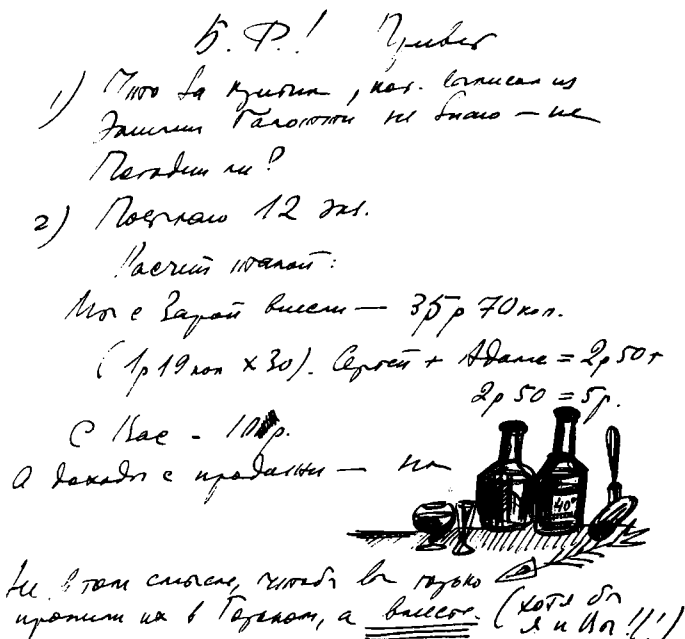 Б. Ф.! Привет
1) Что за критик, кот. выписан из
Эмилии Галотти не знаю — не
Погодин ли?
2) Посылаю 12 экз.
Расчет такой:
Мы с Зарой внесли — 35 р 70 коп.
(1 р 19 коп × 30). Сергей + Адамс = 2 р 50 +
2 р 50 = 5 р.
С Вас - 10 р.
А доходы с продажи — на
40°
Не в том смысле, чтобы вы только
пропили их в Горьком, а вместе. (хотя бы
я и Вы!!!)